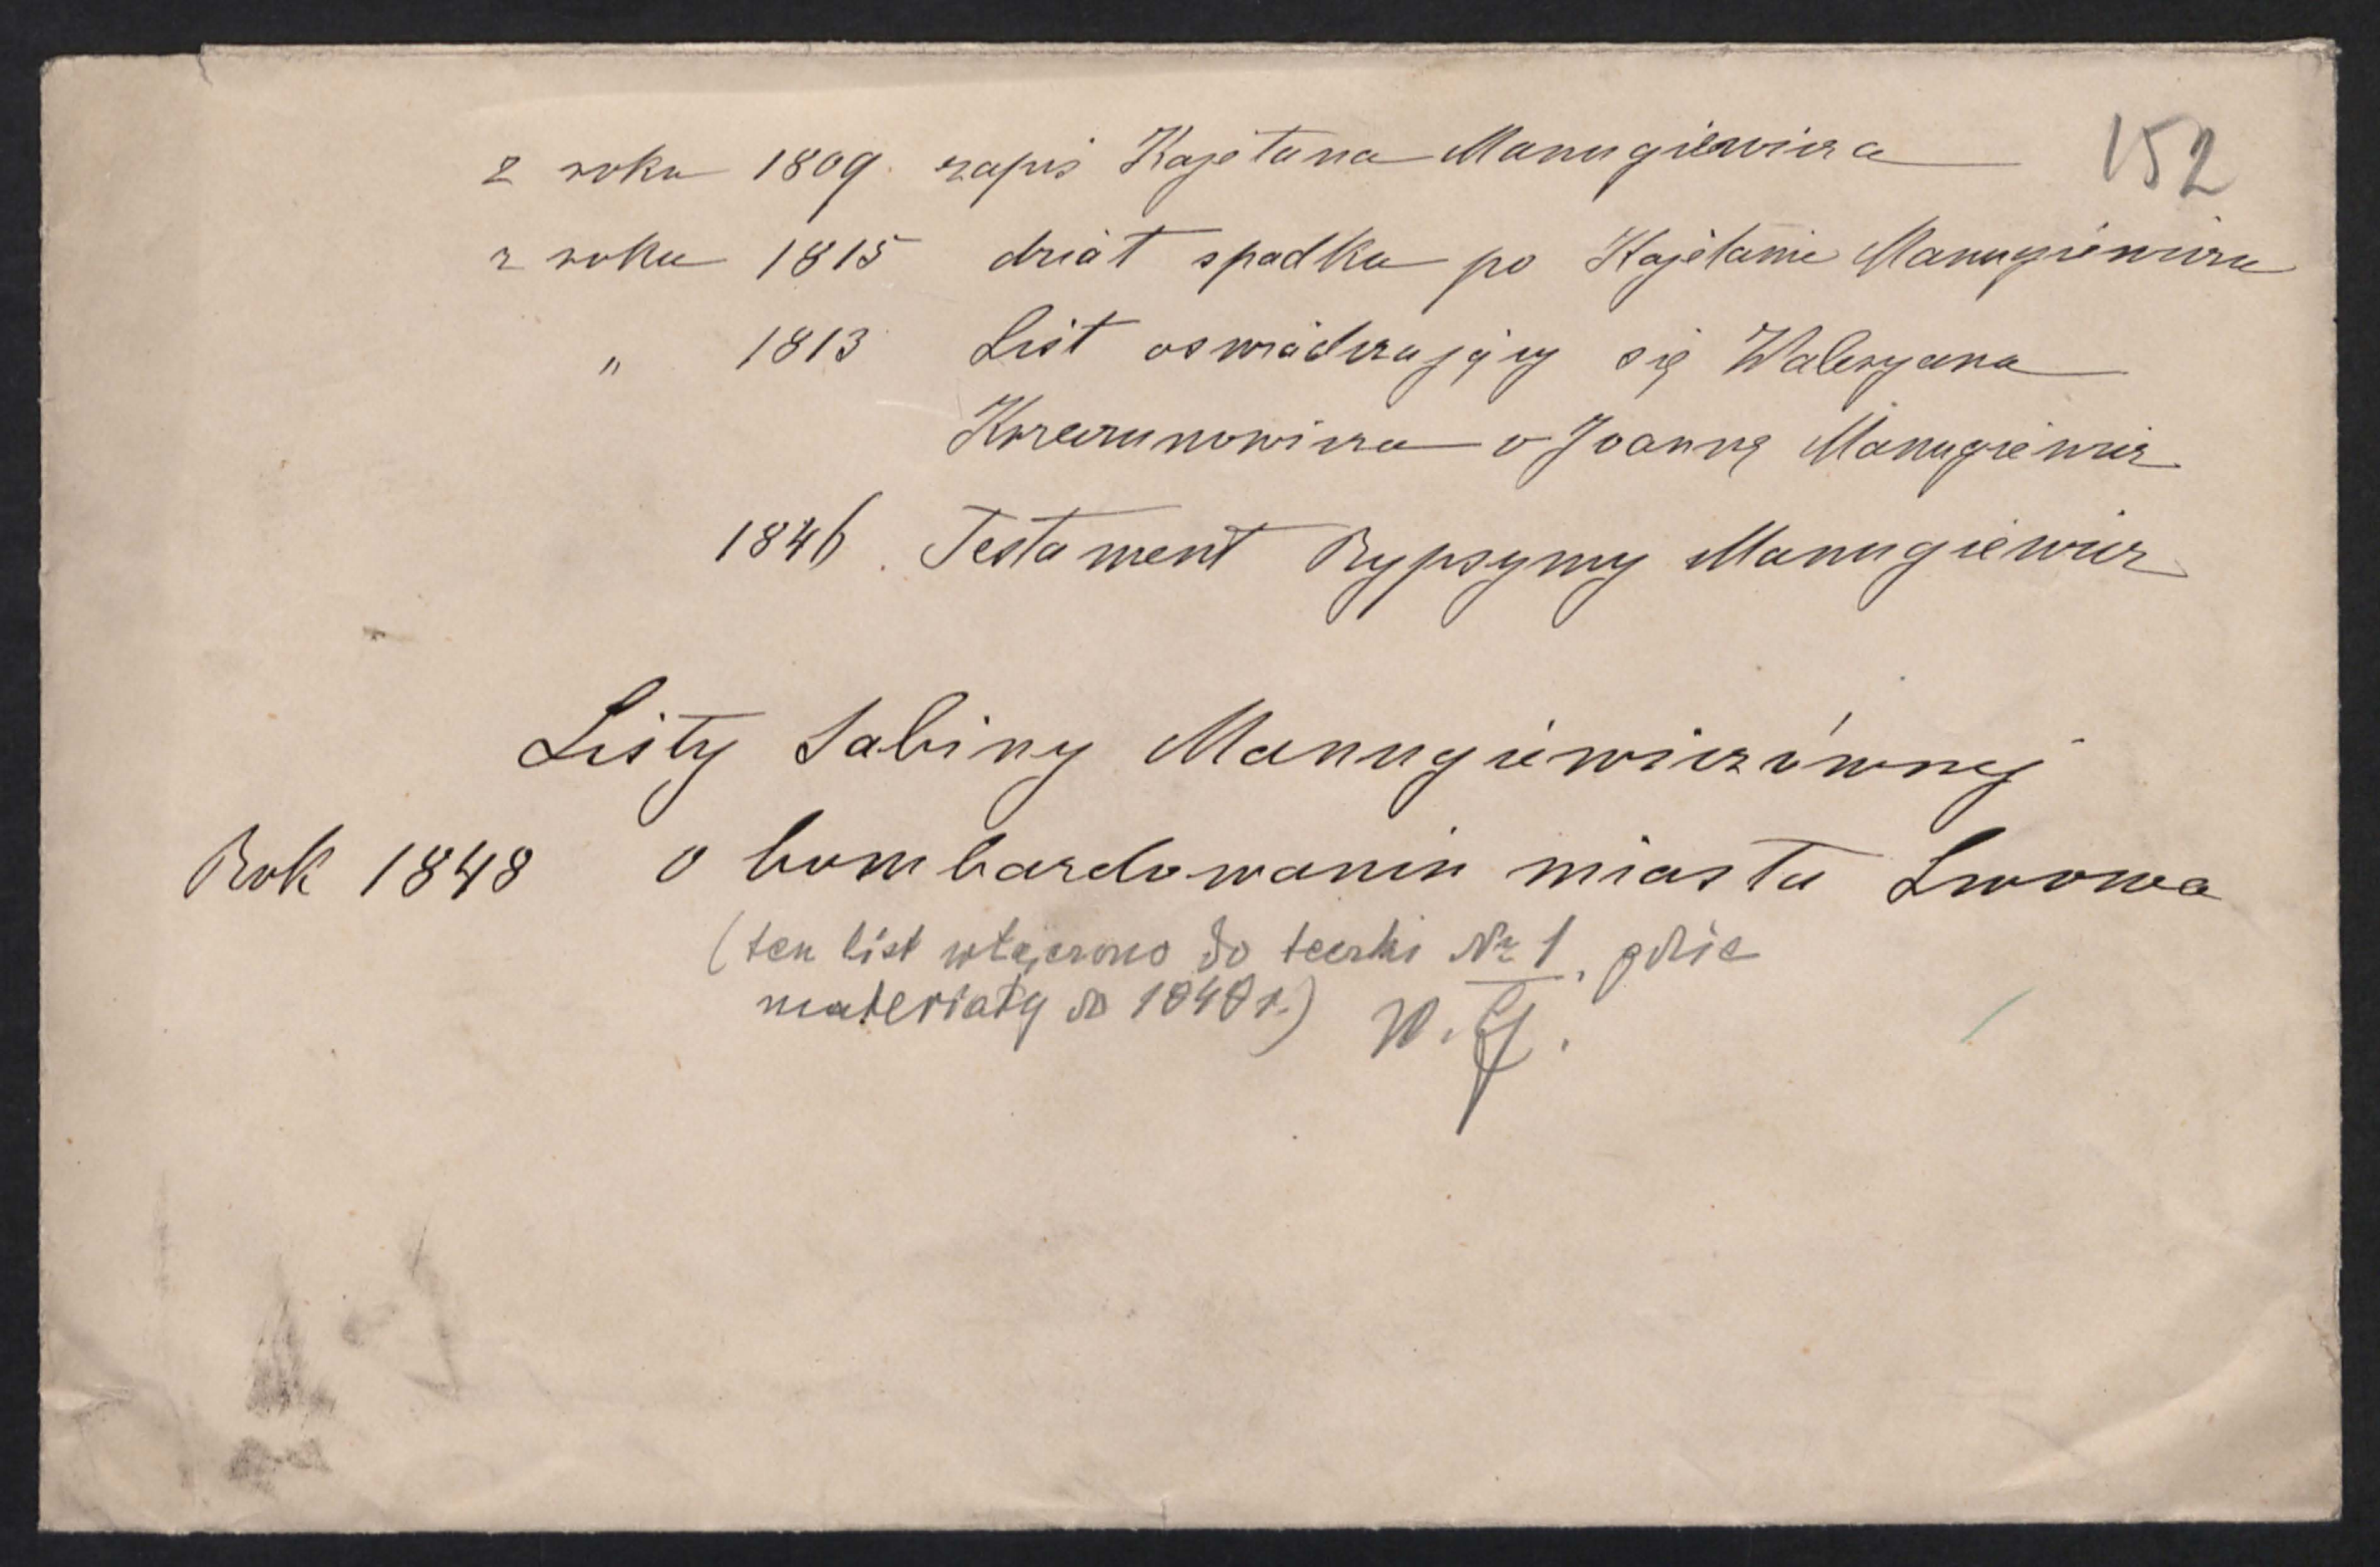 152
z roku 1809. zapis Kajetana Manugiewicza
z roku 1815 dział spadku po Kajetanie Manugiewiczu
" 1813 List oswiadczający się Waleryana
Krzeczunowicza o Joannę Manugiewicz
1846. Testament Rypsymy Manugiewicz
Listy Sabiny Manugiewiczównej
Rok 1848 o bombardowaniu miasta Lwowa
(ten list włączono do teczki № 1, gdzie
materiały do 1848 r.) W.